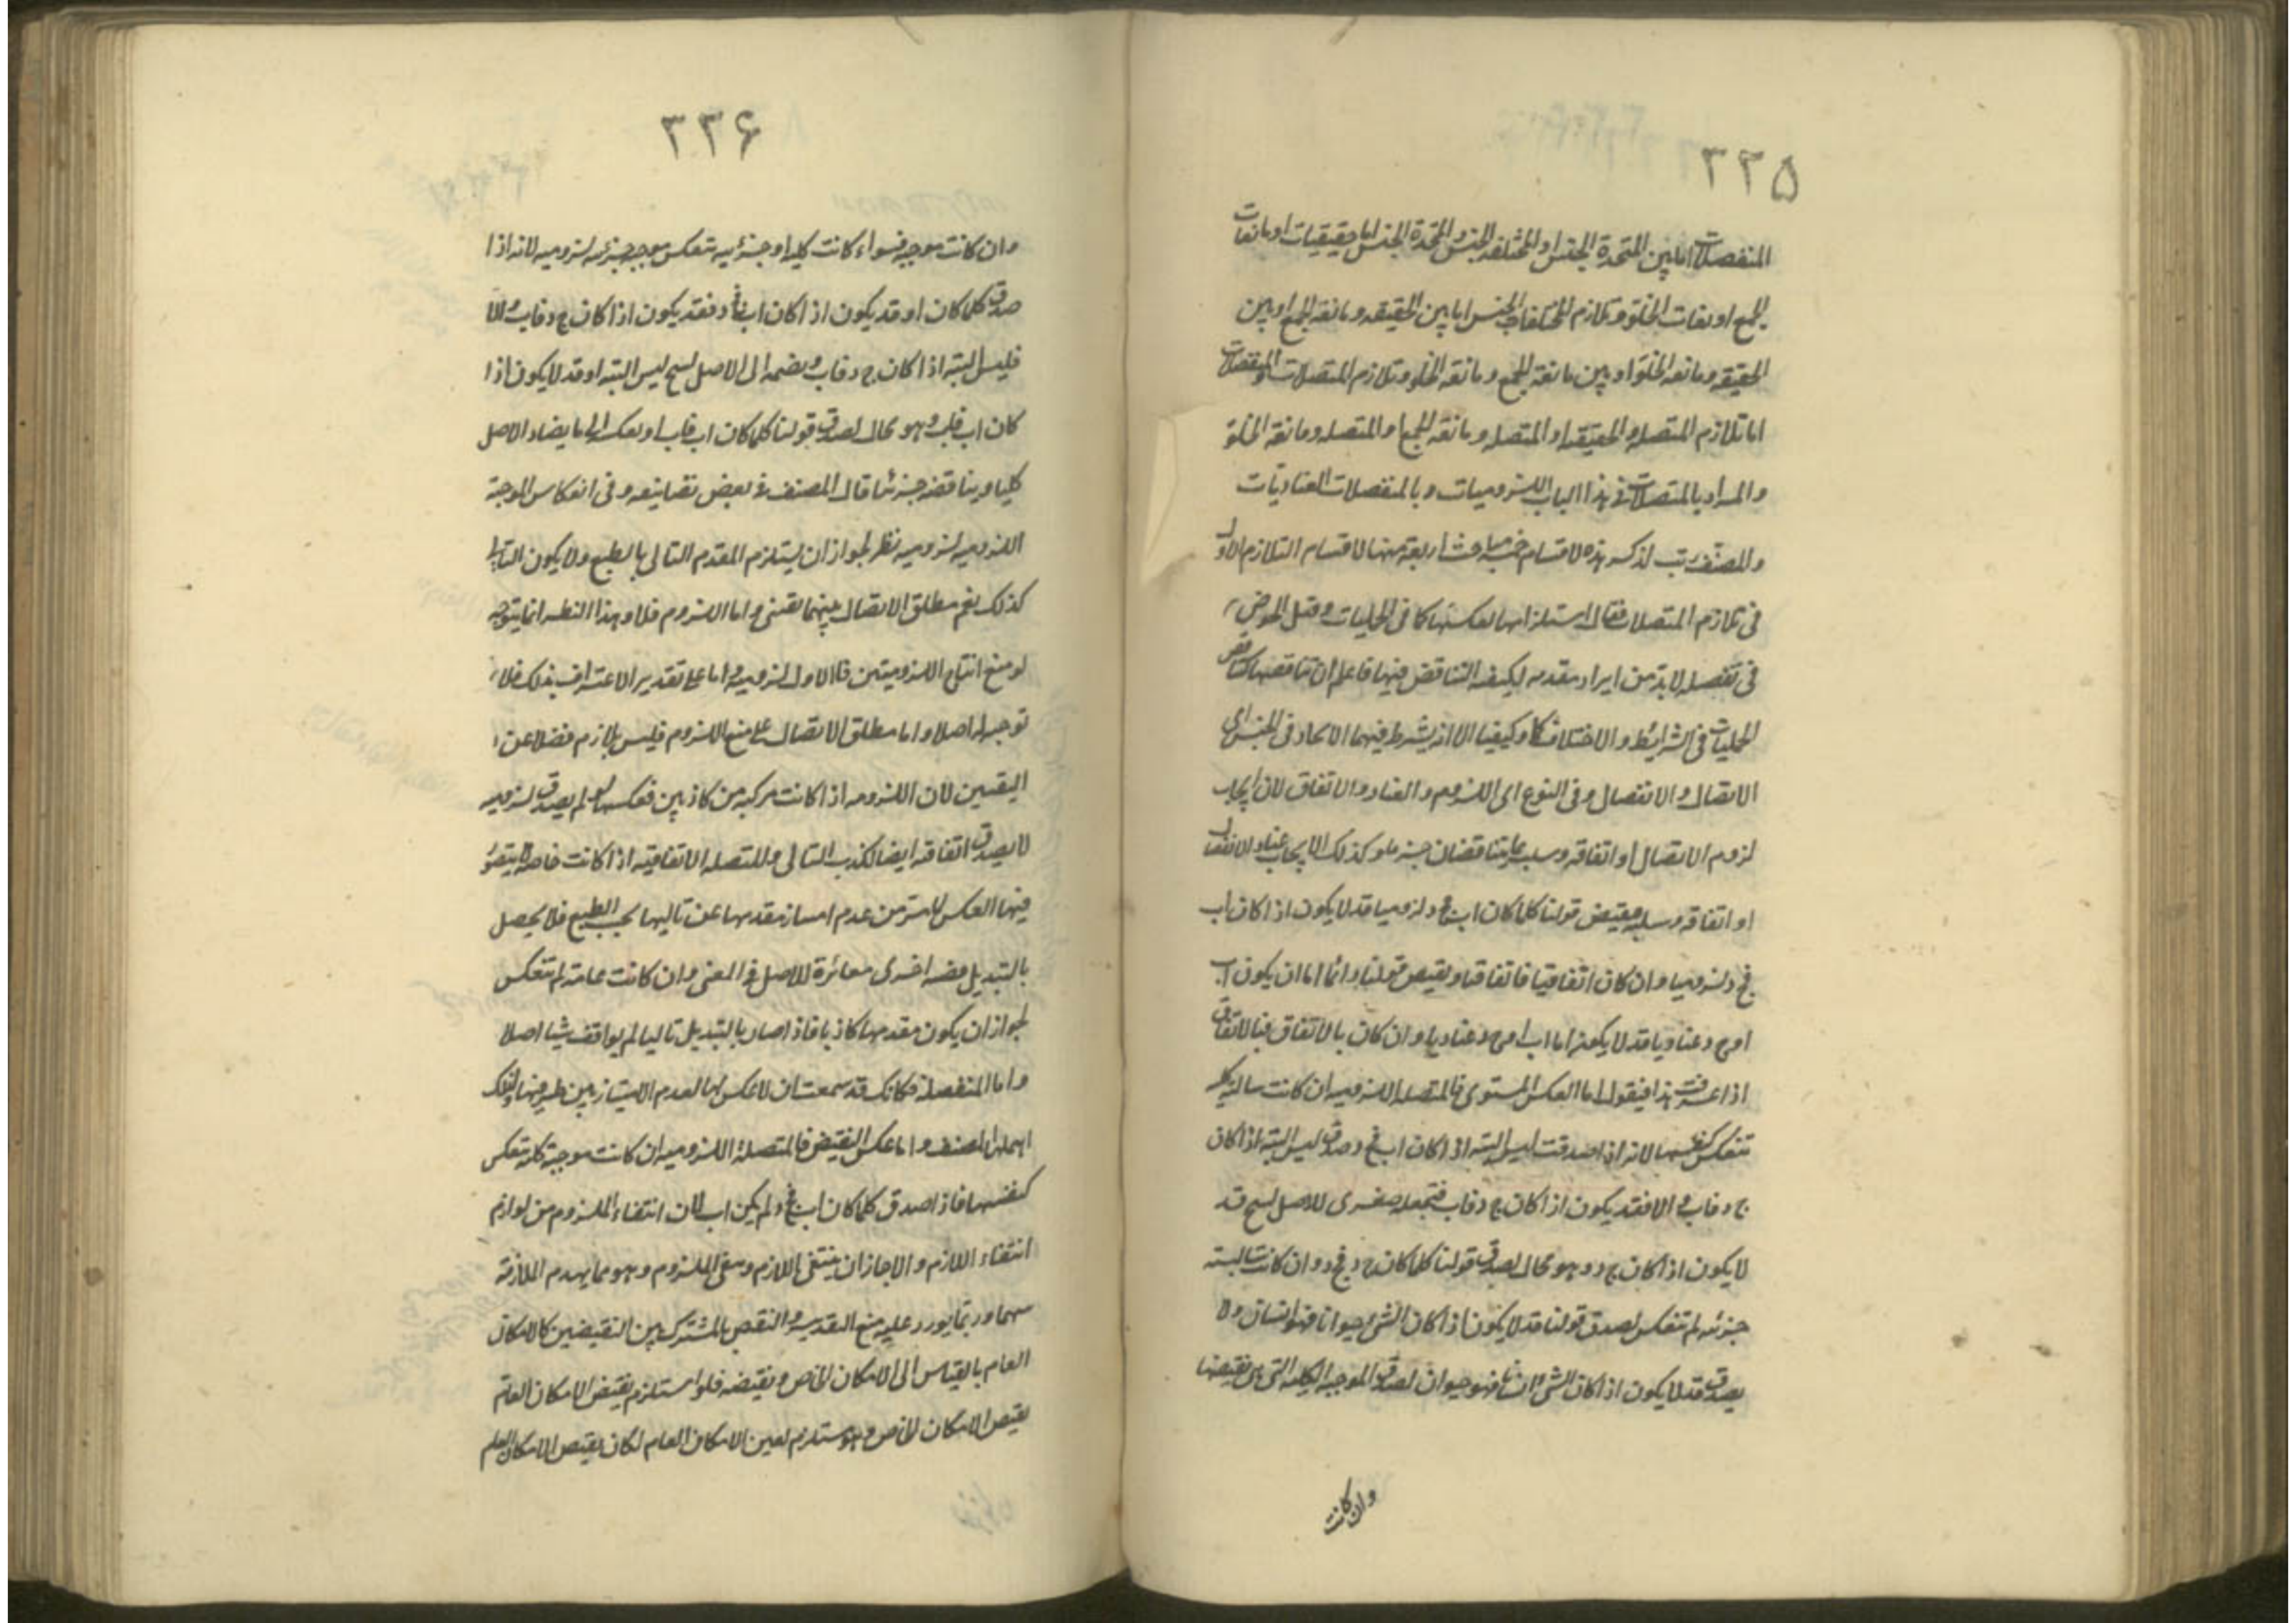 ٣٣۵
المنفصلات اما بين المتحدة الجنس او المختلفة الجنس والمتحدة الجنس اما حقيقيات او مانعات
الجمع او مانعات الخلو وتلازم المختلفات الجنس اما بين الحقيقه ومانعة الجمع او بين
الحقيقه ومانعه الخلو او بين مانعة الجمع ومانعه الخلو وتلازم المتصلات والمنفصلات
اما تلازم المتصله والحقيقه او المتصله ومانعه الجمع او المتصله ومانعه الخلو
والمراد بالمتصلات فى هذا الباب اللزوميات وبالمنفصلات العناديات
والمصنف رتب لذكر هذه الاقسام خمسة مباحث اربعة منها لاقسام التلازم الاول
فى تلازم المتصلات فقال استلزامها لعكسها كما فى الحمليات وقبل الخوض
فى تفصيله لابد من ايراد مقدمه لكيفية التناقض فيها فاعلم ان تناقضها كتناقض
الحمليات فى الشرايط والاختلاف كما وكيفا الا انه يشترط فيهما الاتحاد فى الجنس اى
الاتصال والانفصال وفى النوع اى اللزوم والعناد والاتفاق لان ايجاب
لزوم الاتصال او اتفاقه وسلبه متناقضان جزما وكذلك الايجاب عناد الانفصال
او اتفاقه وسلبه فنقيض قولنا كلما كان اب فج د لزوميا قد لا يكون اذا كان اب
فج د لزوميا وان كان اتفاقيا فاتفاقيا ونقيض قولنا دائما اما ان يكون اب
او ج د عناديا قد لا يكون اما اب او ج د عناديا وان كان بالاتفاق فبالاتفاق
اذا عرفت هذا فيقول اما العكس المستوى فالمتصله اللزوميه ان كانت سالبه كليه
تنعكس كنفسها لانه اذا صدقت ليس البته اذا كان اب فج د صدق ليس البته اذا كان
ج د فاب والا فقد يكون اذا كان ج د فاب فتجعله صغرى للاصل لينتج قد
لا يكون اذا كان ج د فج د وهو محال لصدق قولنا كلما كان ج د فج د وان كانت سالبه
جزئيه لم تنعكس لصدق قولنا قد لا يكون اذا كان الشى حيوانا فهو انسان ولا
يصدق قد لا يكون اذا كان الشى انسانا فهو حيوان لصدق الموجبه الكليه التى هى نقيضها
وان كانت
٣٣۶
وان كانت موجبة فسواء كانت كلية او جزئيه تنعكس موجبه جزئيه لزوميه لانه اذا
صدق كلما كان او قد يكون اذا كان اب فج د فقد يكون اذا كان ج د فاب والا
فليس البته اذا كان ج د فاب ونضمه الى الاصل لينتج ليس البته او قد لا يكون اذا
كان اب فاب وهو محال لصدق قولنا كلما كان اب فاب او نعكسه الى ما يضاد الاصل
كليا ويناقضه جزئيا قال المصنف فى بعض تصانيفه وفى انعكاس الموجبة
اللزوميه لزوميه نظر لجواز ان يستلزم المقدم التالى بالطبع ولا يكون التالى
كذلك نعم مطلق الاتصال بينهما يقينى واما اللزوم فلا وهذا النظر انما يتوجه
لو منع انتاج اللزوميتين فى الاول لزوميه واما على تقدير الاعتراف بذلك فلا
توجيه له اصلا واما مطلق الاتصال على منع اللزوم فليس بلازم فضلا عن
اليقين لان اللزوميه اذا كانت مركبه من كاذبين فعكسها لو لم يصدق لزوميه
لا يصدق اتفاقيه ايضا لكذب التالى والمتصله الاتفاقيه اذا كانت خاصه لا يتصور
فيها العكس لما مر من عدم امتياز مقدمها عن تاليها بحسب الطبع فلا يحصل
بالتبديل قضيه اخرى مغائرة للاصل فى المعنى وان كانت عامة لم تنعكس
لجواز ان يكون مقدمها كاذبا فاذا صار بالتبديل تاليا لم يوافق شيئا اصلا
واما المنفصلة فكانك قد سمعت ان لا عكس لها لعدم الامتياز بين طرفيها ولذلك
اهملها المصنف واما عكس النقيض فالمتصلة اللزوميه ان كانت موجبة كلية تنعكس
كنفسها فاذا صدق كلما كان اب فج د لم يكن اب لان انتفاء الملزوم من لوازم
انتفاء اللازم والا جاز ان ينتفى اللازم ويبقى الملزوم وهو مما يهدم الملازمة
بينهما وربما يورد عليه منع التقدير والنقض بالمشترك بين النقيضين كالامكان
العام بالقياس الى الامكان الخاص ونقيضه فلو استلزم نقيض الامكان العام
نقيض الامكان الخاص وهو مستلزم لعين الامكان العام لكان نقيض الامكان العام